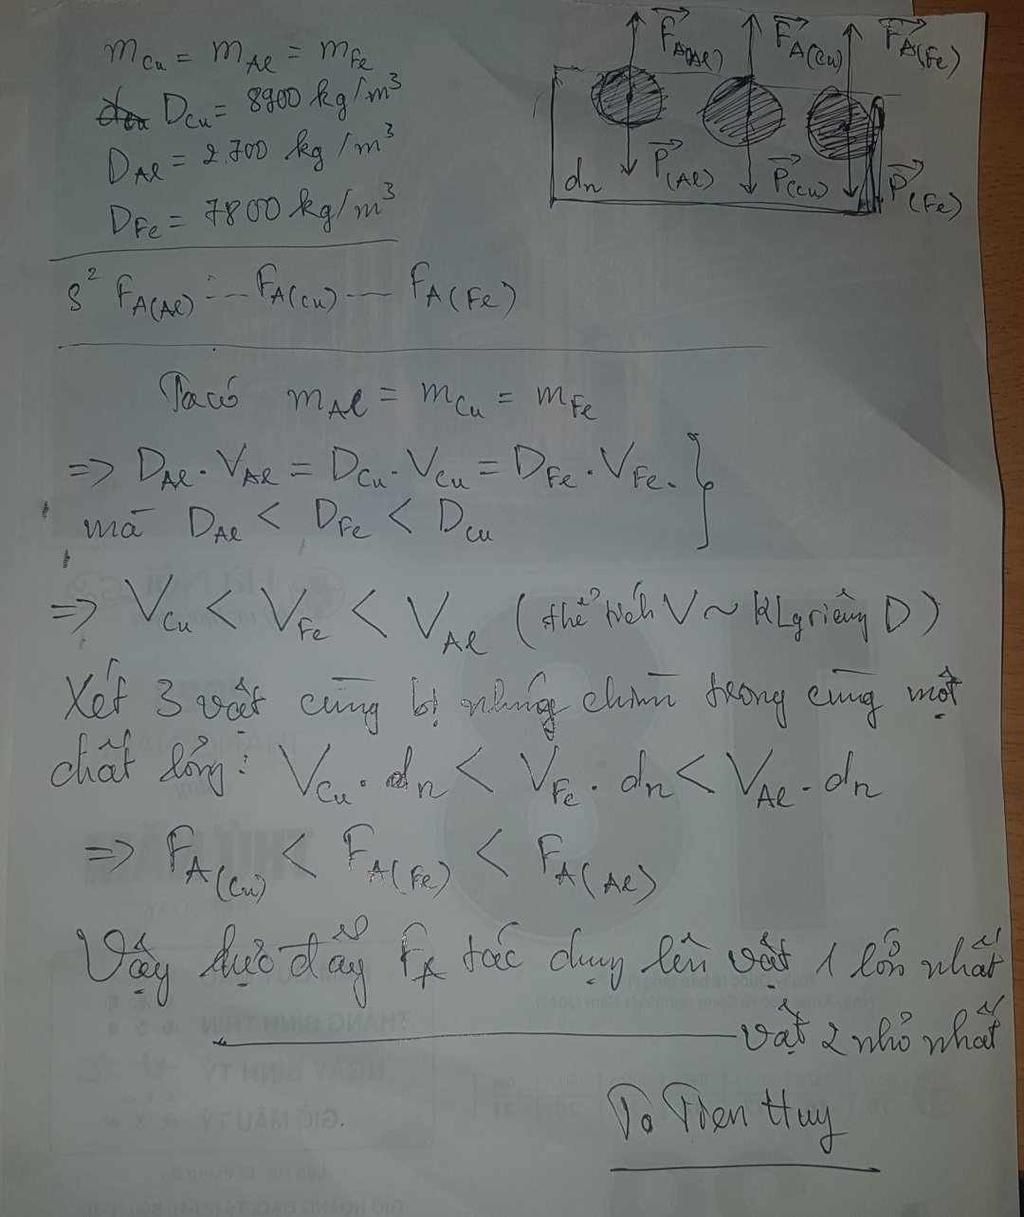 m_Cu = m_Al = m_Fe
D_Cu = 8900 kg/m³
D_Al = 2700 kg/m³
D_Fe = 7800 kg/m³
F_A(Al) F_A(Cu) F_A(Fe)
P_(Al) P_(Cu) P_(Fe)
dn
S² F_A(Al) ... F_A(Cu) ... F_A(Fe)
Ta có m_Al = m_Cu = m_Fe
=> D_Al . V_Al = D_Cu . V_Cu = D_Fe . V_Fe .
mà D_Al < D_Fe < D_Cu
=> V_Cu < V_Fe < V_Al (thể tích V ~ KLg riêng D)
Xét 3 vật cùng bị nhúng chìm trong cùng một
chất lỏng: V_Cu . dn < V_Fe . dn < V_Al . dn
=> F_A(Cu) < F_A(Fe) < F_A(Al)
Vậy lực đẩy F_A tác dụng lên vật 1 lớn nhất
vật 2 nhỏ nhất
Tien Huy